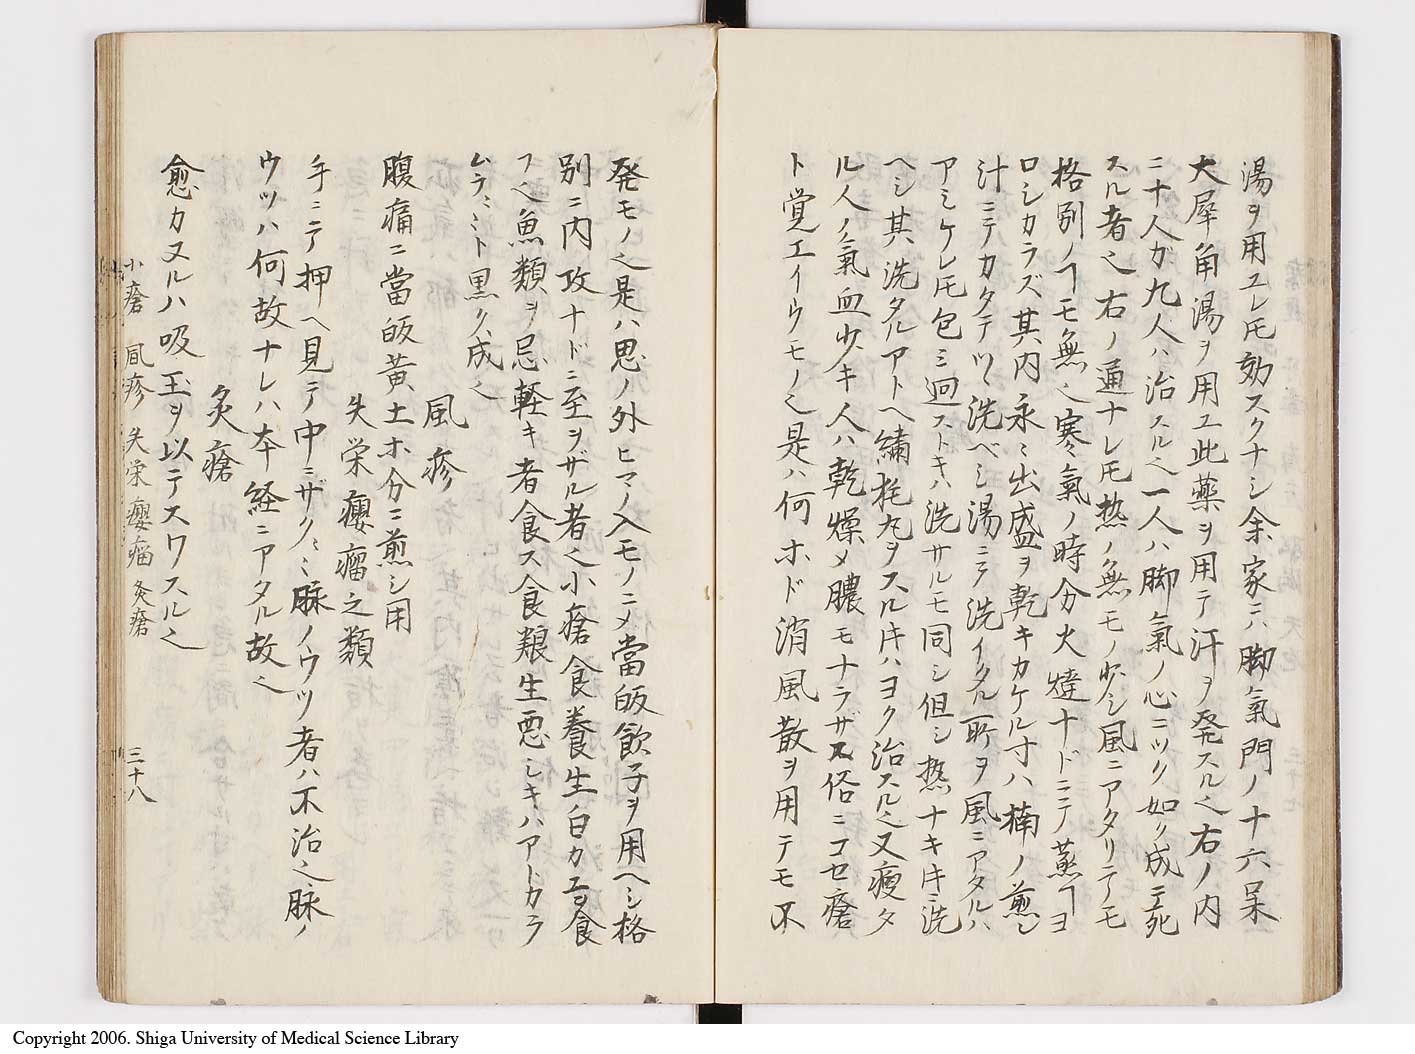 湯ヲ用ユレ𪜈効スクナシ余家ニハ脚氣門ノ十六呆
大犀角湯ヲ用ユ此藥ヲ用テ汗ヲ発スル也右ノ内
二十人カ九人ハ治スル也一人ハ脚氣ノ心ニツク如ク成テ死
スル者也右ノ通ナレ𪜈熱ノ無モノ少シ風ニアタリテモ
格別ノヿモ無也寒氣ノ時分火燵ナドニテ蒸ヿヨ
ロシカラズ其内永ミ出盛ヲ乾キカケル寸ハ楠ノ煎シ
汁ニテカタテツヽ洗ベシ湯ニテ洗イタル所ヲ風ニアタルハ
アシケレ𪜈包ミ廻ストキハ洗サルモ同シ但シ熱ナキ𪜈洗
ヘシ其洗タルアトヘ繍毬丸ヲスル𪜈ハヨク治スル也又瘦タ
ル人ノ氣血少キ人ハ乾燥メ膿モナラザス俗ニコセ瘡
ト覚エイウモノ也是ハ何ホド消風散ヲ用テモ不
発モノ也是ハ思ノ外ヒマノ入モノニメ當皈飲子ヲ用ヘシ格
別ニ内攻ナドニ至ヲザル者也小瘡食養生白カユヲ食
フヘ魚類ヲ忌軽キ者食ス食粮生悪シキハアトカラ
ムラヽミト黒ク成也
風疹
腹痛ニ當皈黄土ホ分ニ煎シ用
失栄癭瘤之類
手ニテ押ヘ見テ中ミザクミ脉ノウツ者ハ不治也脉ノ
ウツハ何故ナレハ本経ニアタル故也
灸瘡
愈カヌルハ吸玉ヲ以テスワスル也
小瘡 風疹 失栄癭瘤 灸瘡 三十八
Copyright 2006. Shiga University of Medical Science Library